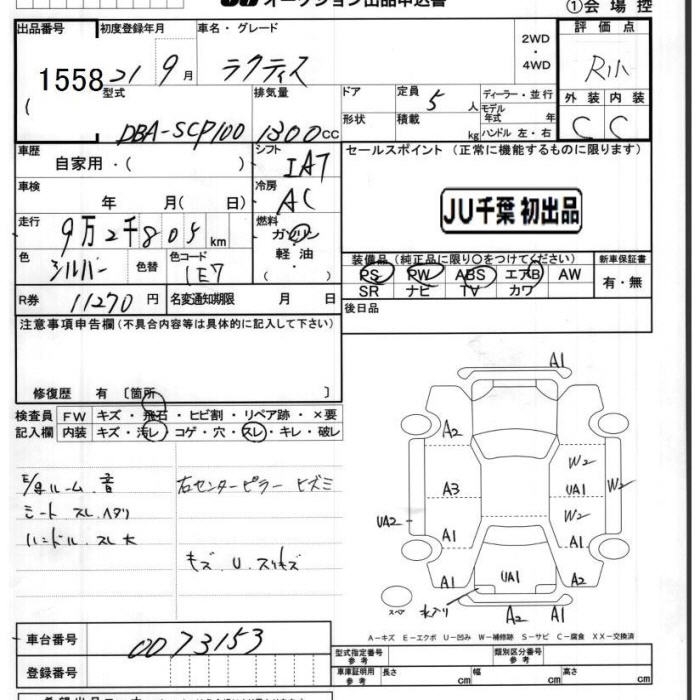 オークション出品申込書
①会場控
出品番号 初度登録年月 車名・グレード 2WD・4WD 評価点
1558 21 9月 ラクティス R小
( 型式 排気量 ドア 定員 5人 ディーラー・並行 外装 内装
DBA-SCP100 1300cc 形状 積載 kg モデル年式 年 ハンドル 左・右 C C
車歴 自家用・( ) シフト IAT セールスポイント (正常に機能するものに限ります)
車検 年 月(日) 冷房 AC JU千葉 初出品
走行 9万2千805km 燃料 ガソリン・軽油・( )
色 シルバー 色替 色コード 1E7
装備品 (純正品に限り○をつけてください) 新車保証書
PS PW ABS エアB AW 有・無
SR ナビ TV カワ
R券 11270円 名変通知期限 月 日 後日品
注意事項申告欄(不具合内容等は具体的に記入して下さい)
修復歴 有 [箇所 ]
検査員 FW キズ・飛石・ヒビ割・リペア跡・×要
記入欄 内装 キズ・汚レ・コゲ・穴・スレ・キレ・破レ
ルーム 音 右センターピラー ヒズミ
シート スレ ヘタリ
ハンドル スレ 大
キズ U スリキズ
A1
A2 W2
A3 UA1 W2
UA2 W2
A1 A1
A1 UA1 A2
スペア A2 A1
A-キズ E-エクボ U-凹み W-補修跡 S-サビ C-腐食 XX-交換済
車台番号 0073153 型式指定番号 参考 類別区分番号 参考
登録番号 車庫証明用 参考 長さ cm 幅 cm 高さ cm